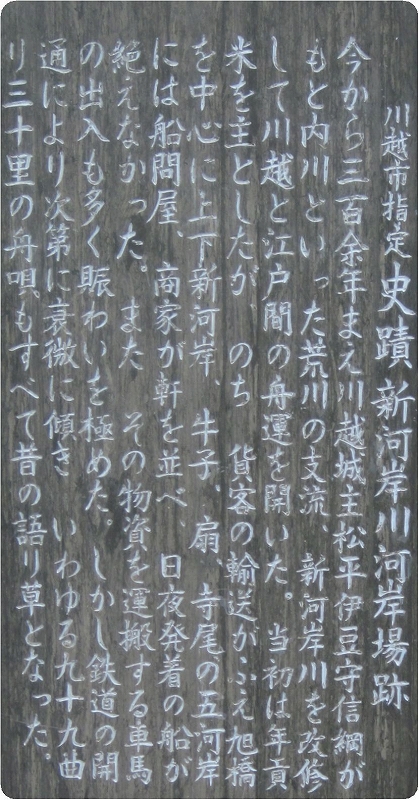 川越市指定 史蹟 新河岸川河岸場跡
今から三百余年まえ川越城主松平伊豆守信綱が
もと内川といった荒川の支流、新河岸川を改修
して川越と江戸間の舟運を開いた。当初は年貢
米を主としたが、のち 貨客の輸送がふえ旭橋
を中心に上下新河岸、牛子、扇、寺尾の五河岸
には船問屋、商家が軒を並べ、日夜発着の船が
絶えなかった。また その物資を運搬する車馬
の出入も多く賑わいを極めた。しかし鉄道の開
通により次第に衰微に傾き いわゆる九十九曲
り三十里の舟唄もすべて昔の語り草となった。